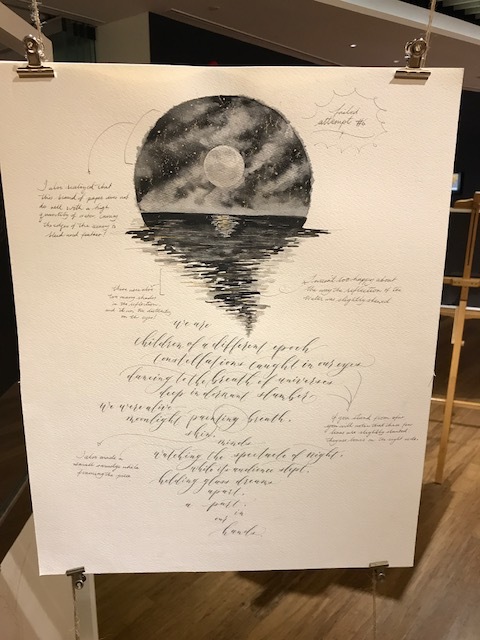 failed
attempt #6
I also realized that
this brand of paper does not
do well with a high
quantity of water causing
the edges of the
black and
there were also
too many shades
in the reflection
on the eyes!
I wasn't too happy about
the way the reflection of the
water was slightly slanted
we are
Children of a different epoch
Constellations caught in our eyes
dancing to the breath of universes
deep in dormant slumber.
we were alive
moonlight painting breath.
skin.
minds
watching the spectacle of night.
while its audience slept.
holding glass dreams
apart.
a part.
in
our
hands.
if you stand from afar
you will notice that these few
lines are slightly slanted
towards the right side.
I also made a
small smudge while
planning the piece